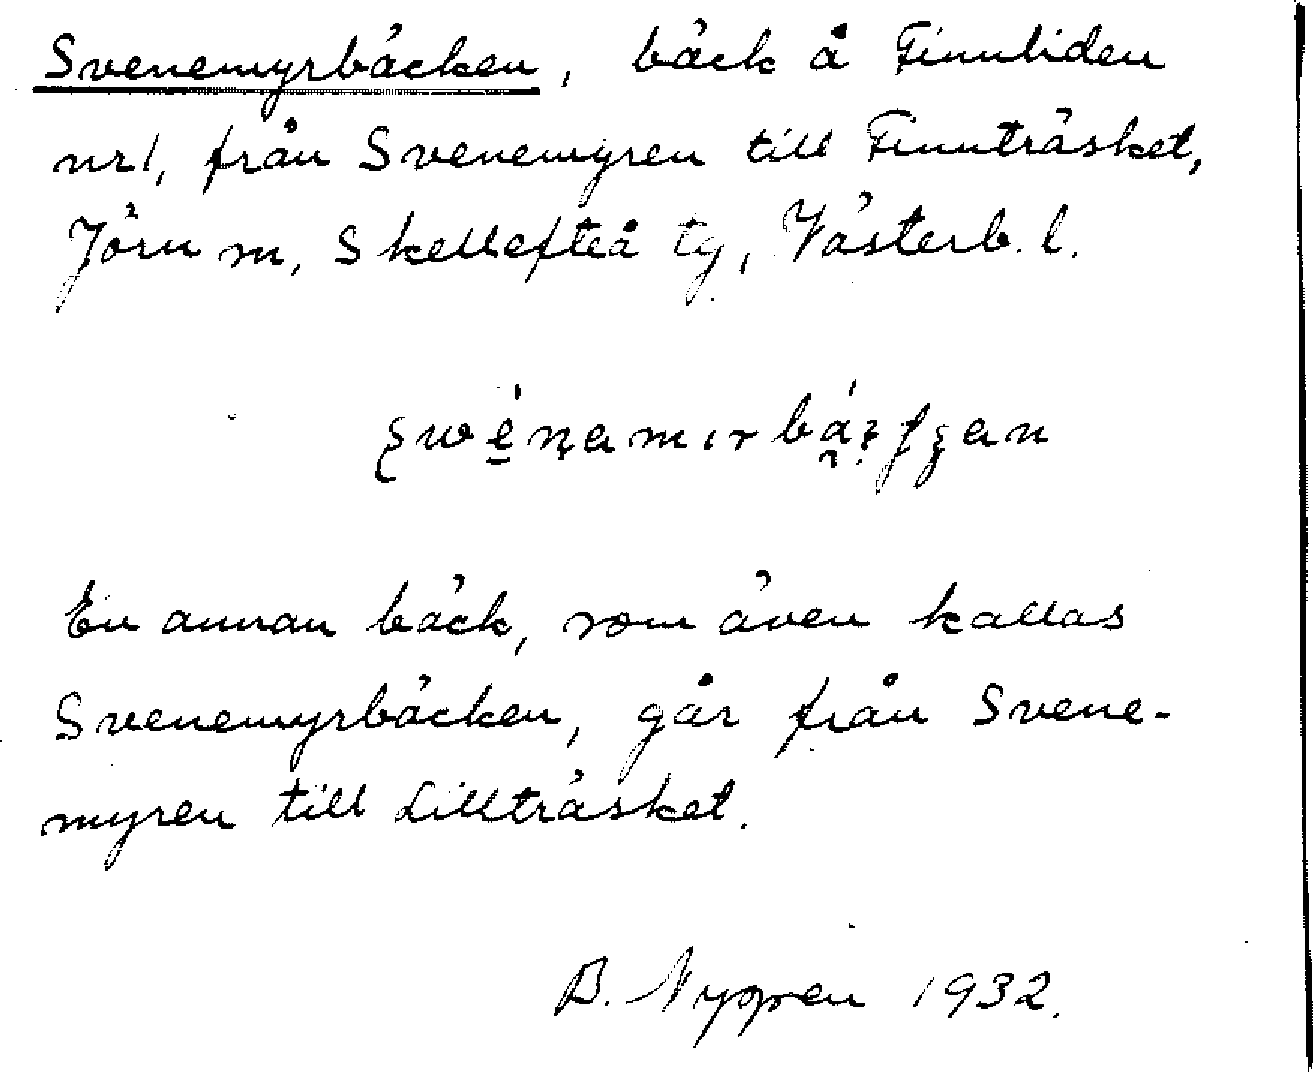 Svenemyrbäcken, bäck å Finnliden
nr 1, från Svenemyren till Finnträsket,
Jörn sn, Skellefteå tg, Västerb. l.
En annan bäck, som även kallas
Svenemyrbäcken, går från Svene-
myren till Lillträsket.
B. Nygren 1932.